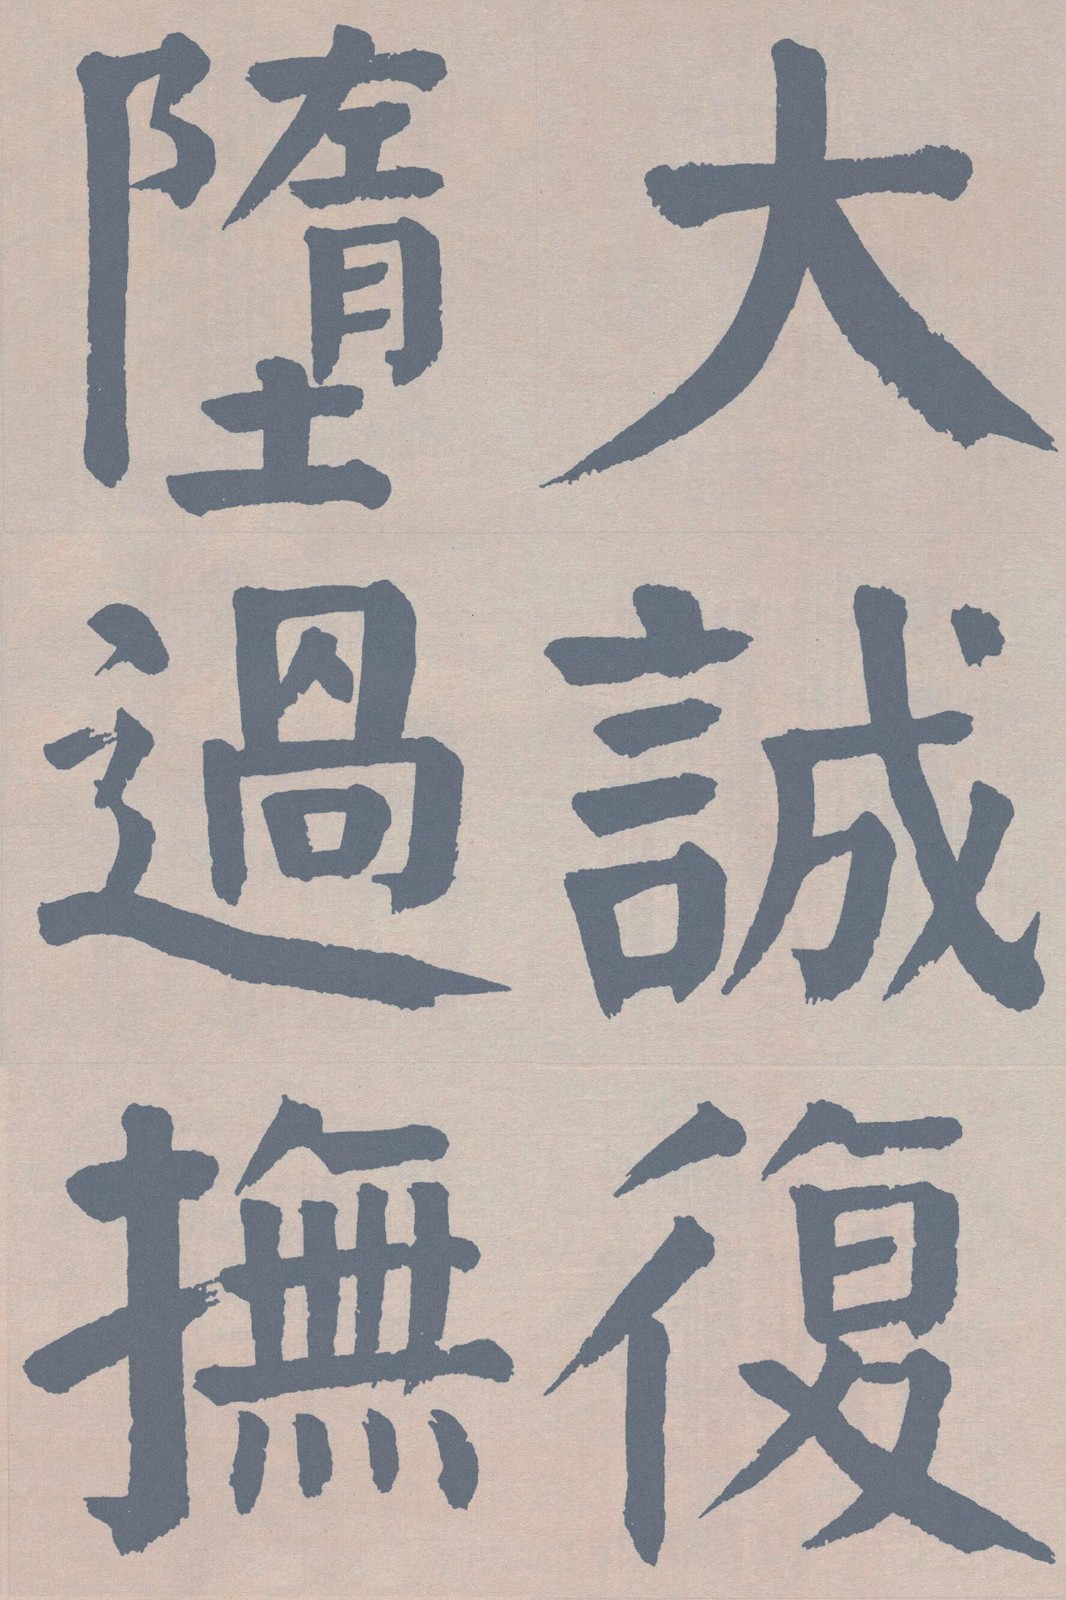 大誠復
墮過撫